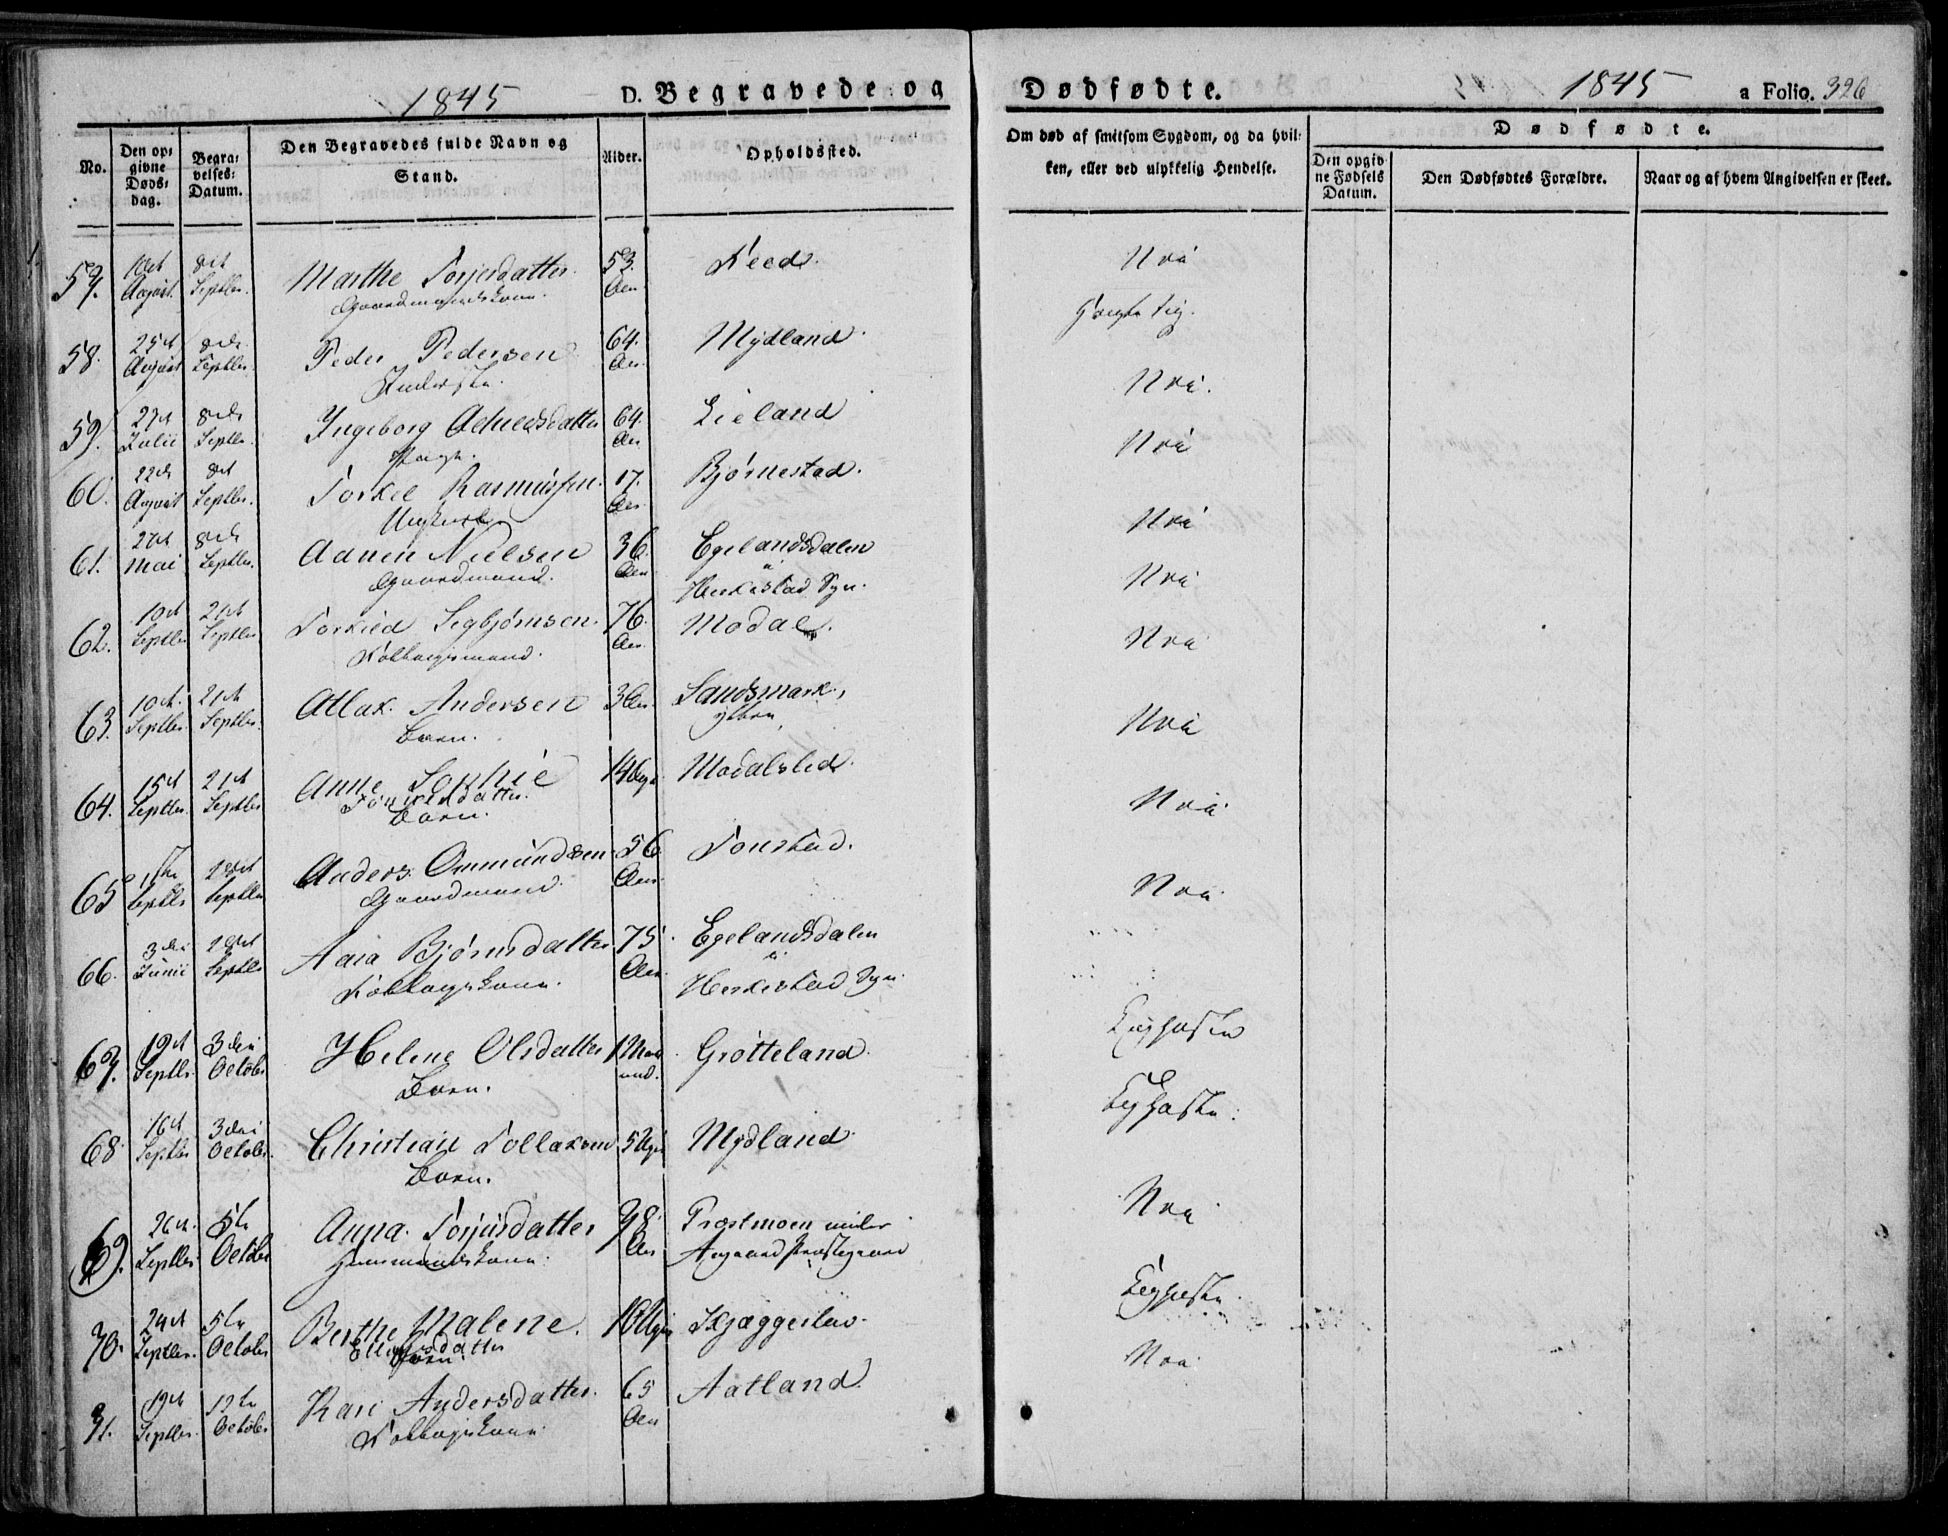 1845 D. Begravede og Dødfødte. 1845 a Folio. 326
No.
Den opgivne Døds-dag.
Begravelses-Datum.
Den Begravedes fulde Navn og Stand.
Alder.
Opholdssted.
Om død af smitsom Sygdom, og da hvilken, eller ved ulykkelig Hendelse.
Dødfødte.
Den opgivne Fødsels Datum.
Den Dødfødtes Forældre.
Naar og af hvem Angivelsen er skeet.
57. August 8de Septbr. Marthe Torjersdatter 53 Aar Nei
Gaardmandskone.
58. 25de August 8de Septbr. Peder Pedersen 64. Aar Mydland Nei.
Inderste.
59. 27de Julii 8de Septbr. Ingeborg Achselsdatter 64. Aar Lieland Nei
60. 22de August 8de Septbr. Torkel Rasmussen 17. Aar Bjørnestad. Nei
Ungkarl
61. 27de Mai 8de Septbr. Aanen Nielsen 36. Aar Egelandsdalen Nei
Gaardmand. i Heskestad Sogn.
62. 10de Septbr. 21de Septbr. Torkild Sigbjørnsen. 76. Aar Modal. Nei
Folkaugsmand.
63. 10de Septbr. 21de Septbr. Atlak Andersen 3 Aar Sandsmark, Nei
Barn.
64. 15de Septbr. 21de Septbr. Anne Sophie 14 Uger Modalsled. Nei
Torkildsdatter.
Barn.
65 Septbr. Septbr. Anders Ommundsen 56 Aar Tonstad. Nei
Gaardmand.
66. 3die Junii Septbr. Aaia Bjørnsdatter 75 Aar Egelandsdalen
Folkaugskone. i Heskestad Sogn.
67. 19de Septbr. 3die October Helene Olsdatter 1 Maaned. Grøtteland.
Barn.
68. 16de Septbr. 3die October. Christian Tollaksen 5 Uger Mydland
Barn.
69. 26de Septbr. 5te October Anna Torjusdatter 38 Aar Præstmoen under Nei
Huusmandskone. Aagaard Præstegaard
70. 24de Septbr. 5te October Berthe Malene. 10 Uger Skjæggeslav
Barn.
71. 19de Septbr. 12te October Kari Andersdatter. 65 Aar Aatland. Nei
Folkaugskone